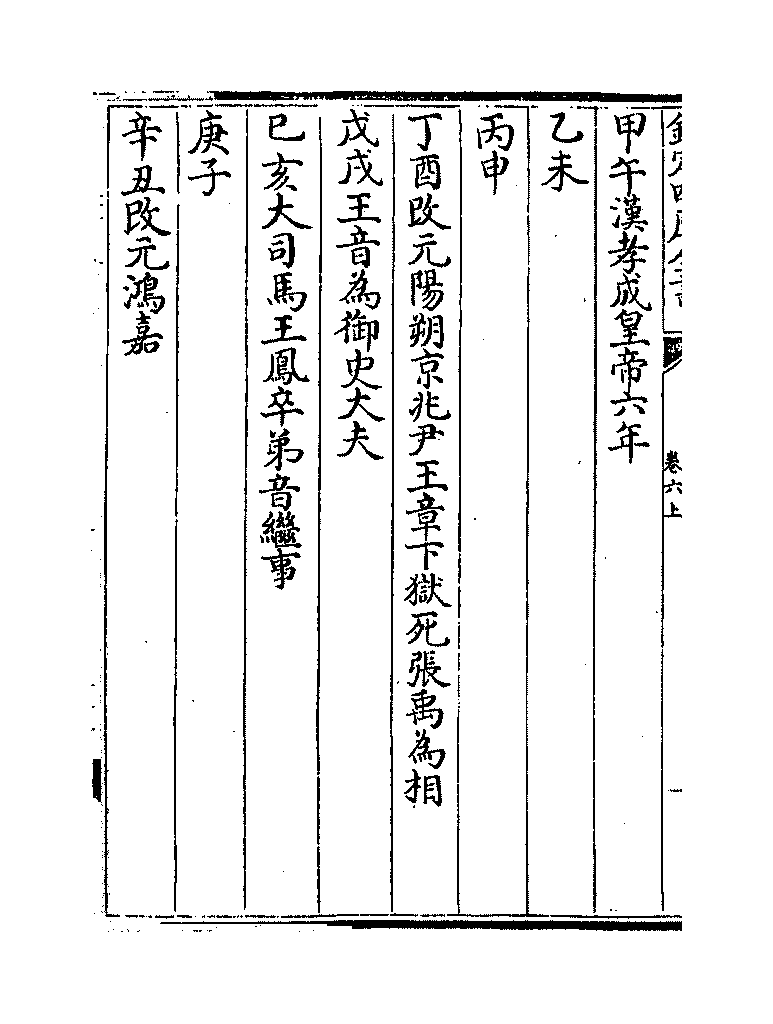 欽定四庫全書
卷六上
甲午漢孝成皇帝六年
乙未
丙申
丁酉改元陽朔京兆尹王章下獄死張禹為相
戊戌王音為御史大夫
已亥大司馬王鳳卒弟音繼事
庚子
辛丑改元鴻嘉